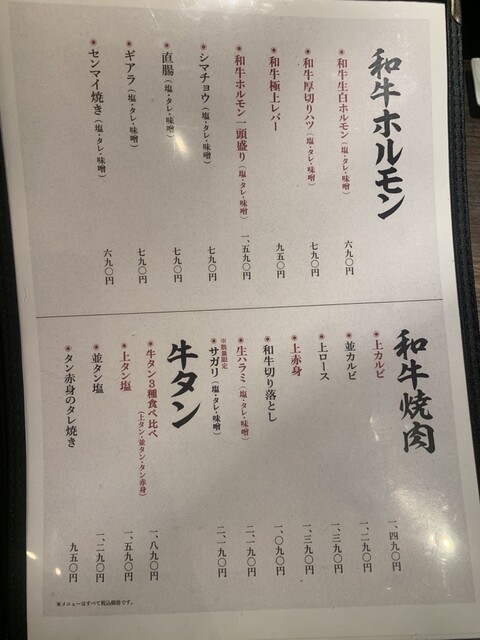 和牛ホルモン
和牛生白ホルモン（塩・タレ・味噌） 六九〇円
和牛厚切りハツ（塩・タレ・味噌） 七九〇円
和牛極上レバー 九五〇円
和牛ホルモン一頭盛り（塩・タレ・味噌） 一、五九〇円
シマチョウ（塩・タレ・味噌） 七九〇円
直腸（塩・タレ・味噌） 七九〇円
ギアラ（塩・タレ・味噌） 七九〇円
センマイ焼き（塩・タレ・味噌） 六九〇円
和牛焼肉
上カルビ 一、四九〇円
並カルビ 一、二九〇円
上ロース 一、三九〇円
上赤身 一、三九〇円
和牛切り落とし 一、〇九〇円
生ハラミ（塩・タレ・味噌） 二、一九〇円
※数量限定
サガリ（塩・タレ・味噌） 二、一九〇円
牛タン
牛タン３種食べ比べ 一、八九〇円
（上タン・並タン・タン赤身）
上タン塩 一、五九〇円
並タン塩 一、二九〇円
タン赤身のタレ焼き 九五〇円
※メニューはすべて税込価格です。